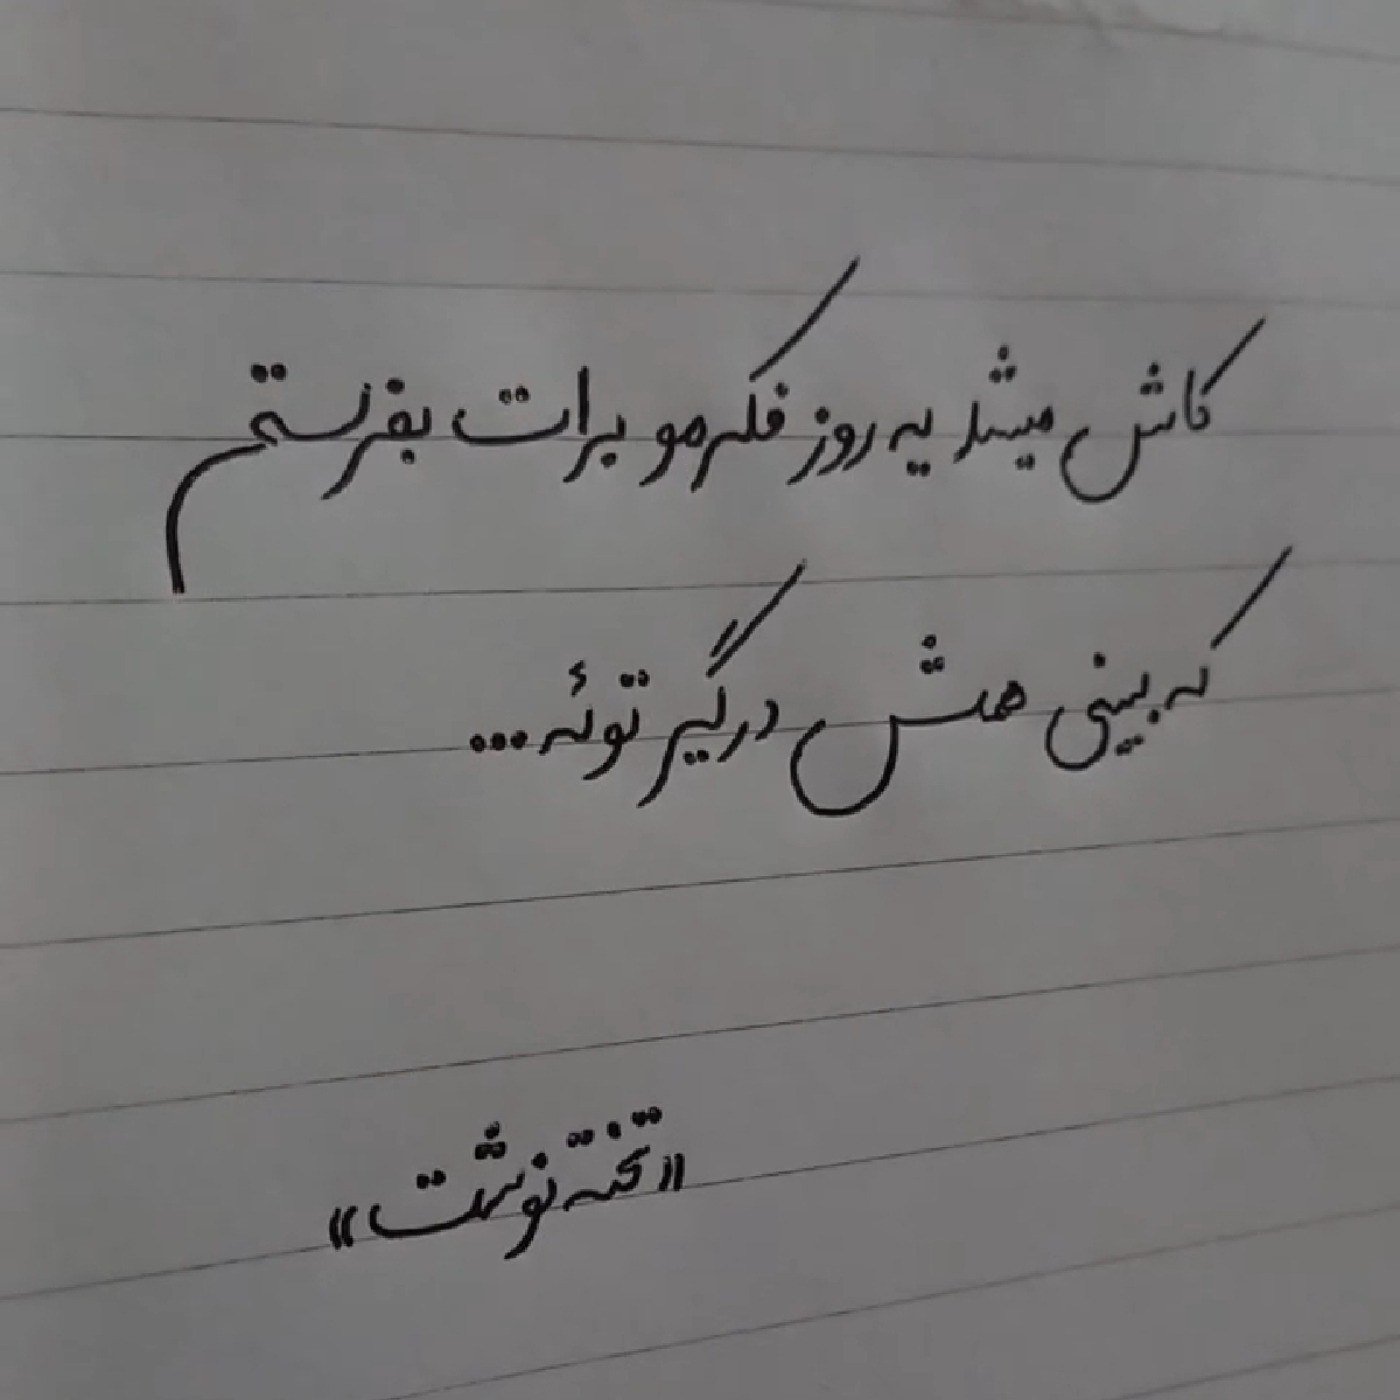 کاش میشد یه روز فکرمو برات بفرستم
که ببینی همش درگیر توئه...
«تخته نوشت»